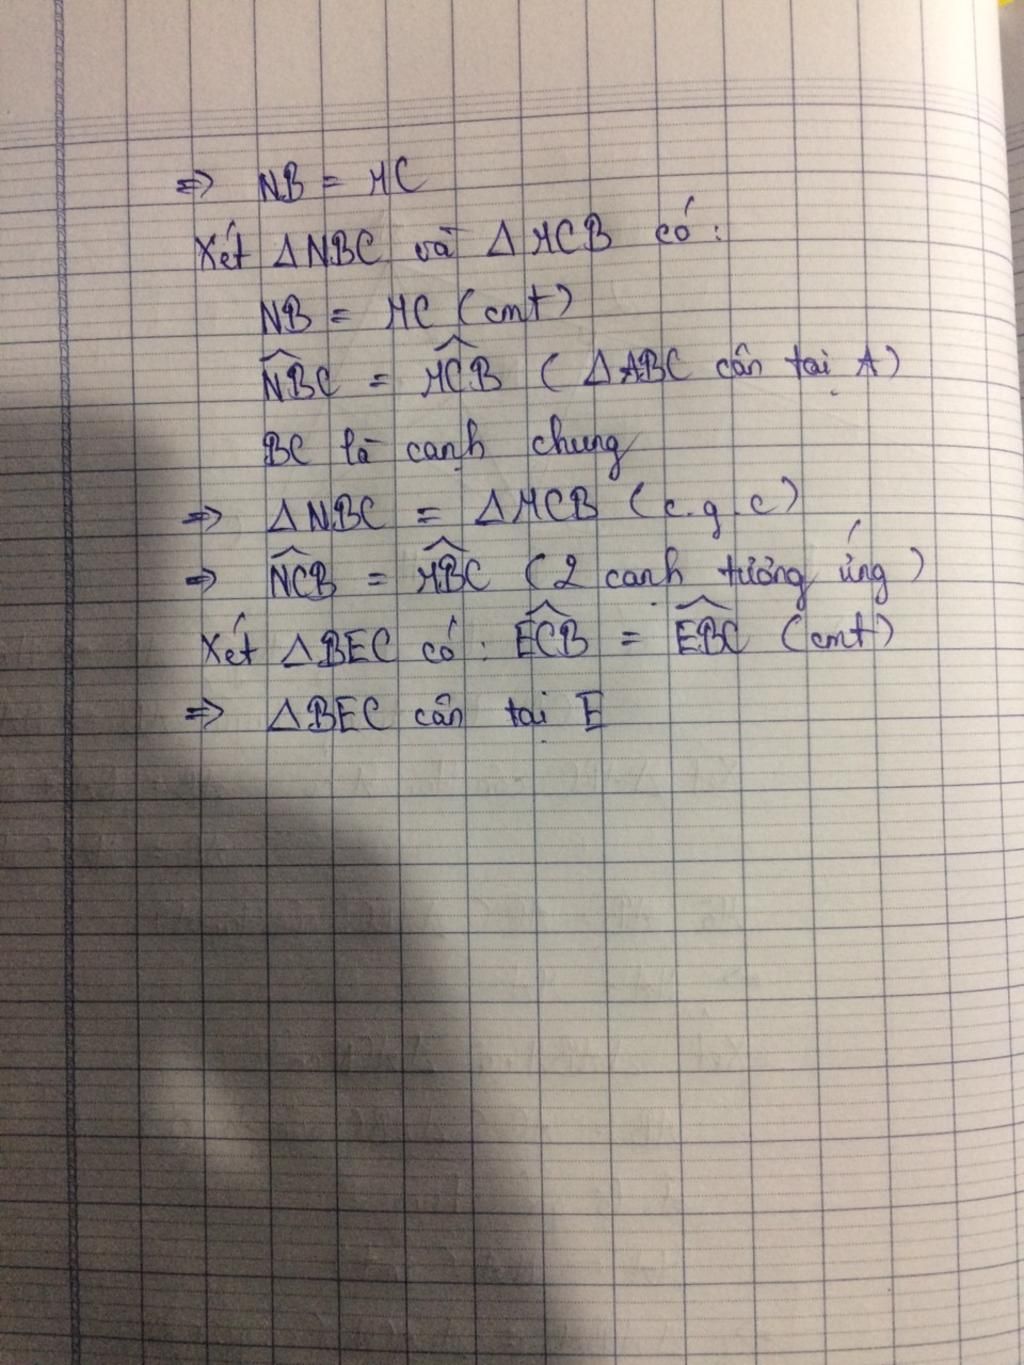 => NB = MC
Xét ΔNBC và ΔMCB có:
NB = MC (cmt)
$\widehat{NBC}$ = $\widehat{MCB}$ (ΔABC cân tại A)
BC là cạnh chung
=> ΔNBC = ΔMCB (c.g.c)
=> $\widehat{NCB}$ = $\widehat{MBC}$ (2 cạnh tương ứng)
Xét ΔBEC có: $\widehat{ECB}$ = $\widehat{EBC}$ (cmt)
=> ΔBEC cân tại E